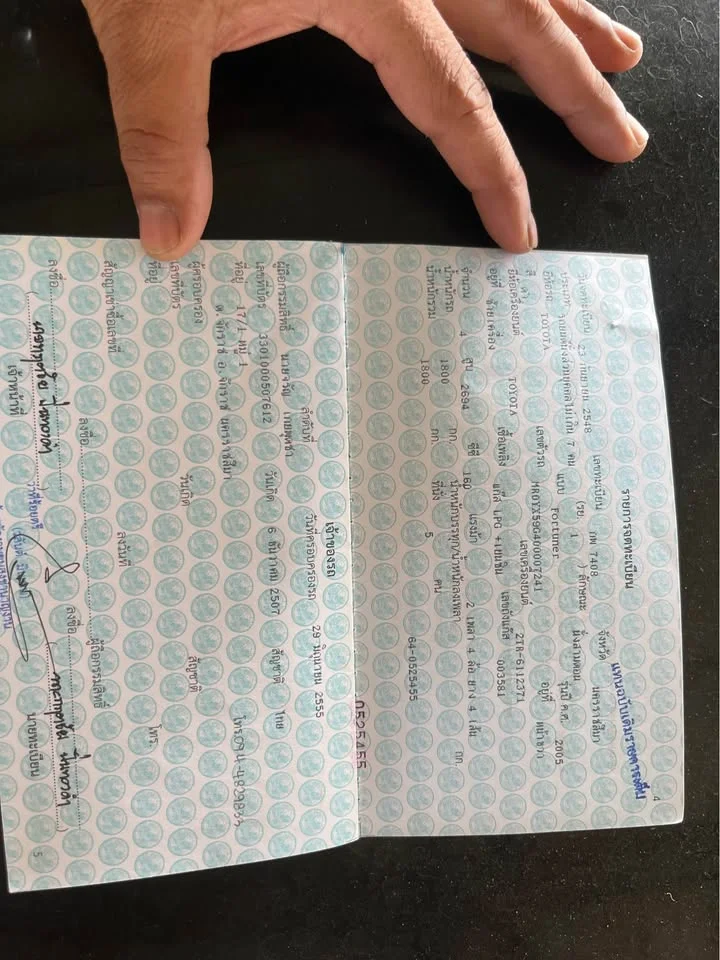 4
แทนฉบับเดิมรายการเต็ม
รายการจดทะเบียน
วันจดทะเบียน 23 กันยายน 2548 เลขทะเบียน กพ 7408 จังหวัด นครราชสีมา
ประเภท รถยนต์นั่งส่วนบุคคลไม่เกิน 7 คน (รย. 1 ) ลักษณะ นั่งสามตอน
ยี่ห้อรถ TOYOTA แบบ Fortuner รุ่นปี ค.ศ. 2005
สี ดำ เลขตัวรถ MR0YX59G400007241 อยู่ที่ หน้าขวา
ยี่ห้อเครื่องยนต์ TOYOTA เลขเครื่องยนต์ 2TR-6112371
อยู่ที่ ซ้ายเครื่อง เชื้อเพลิง แก๊ส LPG +เบนซิน เลขถังแก๊ส 003581
จำนวน 4 สูบ 2694 ซีซี 160 แรงม้า 2 เพลา 4 ล้อ ยาง 4 เส้น
น้ำหนักรถ 1800 กก. น้ำหนักบรรทุก/น้ำหนักลงเพลา กก.
น้ำหนักรวม 1800 กก. ที่นั่ง 5 คน
64-0525455
0525455
เจ้าของรถ
ลำดับที่ วันที่ครอบครองรถ 29 มิถุนายน 2555
ผู้ถือกรรมสิทธิ์
เลขที่บัตร 3301000507612 วันเกิด 6 ธันวาคม 2507 สัญชาติ ไทย
ที่อยู่ 17/1 หมู่ 1
ต. จักราช อ. จักราช นครราชสีมา
ผู้ครอบครอง
เลขที่บัตร วันเกิด สัญชาติ
ที่อยู่ โทร.
สัญญาเช่าซื้อเลขที่ ลงวันที่
ลงชื่อ ผู้ถือกรรมสิทธิ์
ลงชื่อ ลงชื่อ
เจ้าหน้าที่ นายทะเบียน
5